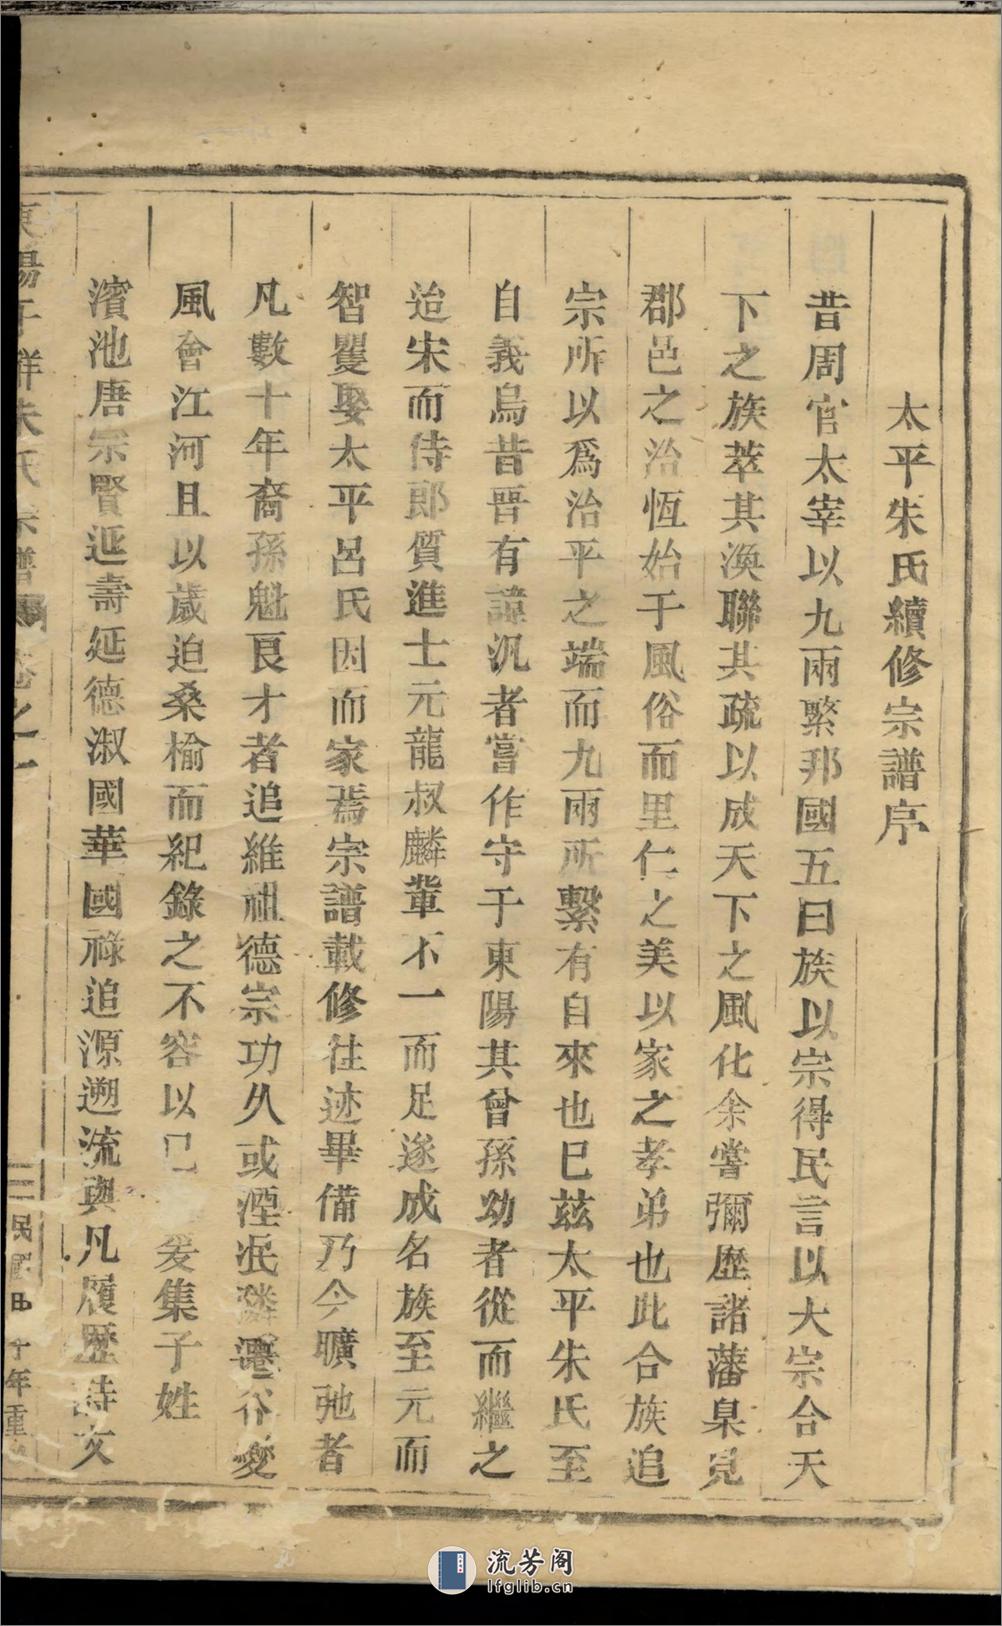 太平朱氏續修宗譜序
昔周官太宰以九兩繫邦國五曰族以宗得民言以大宗合天
下之族萃其渙聯其疏以成天下之風化余嘗彌歷諸藩臬見
郡邑之治恆始于風俗而里仁之美以家之孝弟也此合族追
宗所以為治平之端而九兩所繫有自來也已茲太平朱氏至
自義烏昔晉有諱汎者嘗作守于東陽其曾孫幼者從而繼之
迨宋而侍郎質進士元龍叔麟輩不一而足遂成名族至元而
智瞿娶太平呂氏因而家焉宗譜載修往迹畢備乃今曠弛者
凡數十年裔孫魁良才者追維祖德宗功久或湮泯遷谷變
風會江河且以歲迫桑榆而紀錄之不容以已爰集子姓
濱池唐宗賢延壽延德淑國華國祿追源遡流與凡履歷詩文
東陽千祥朱氏宗譜 卷之一
民國 十年重
流芳阁
lfglib.cn